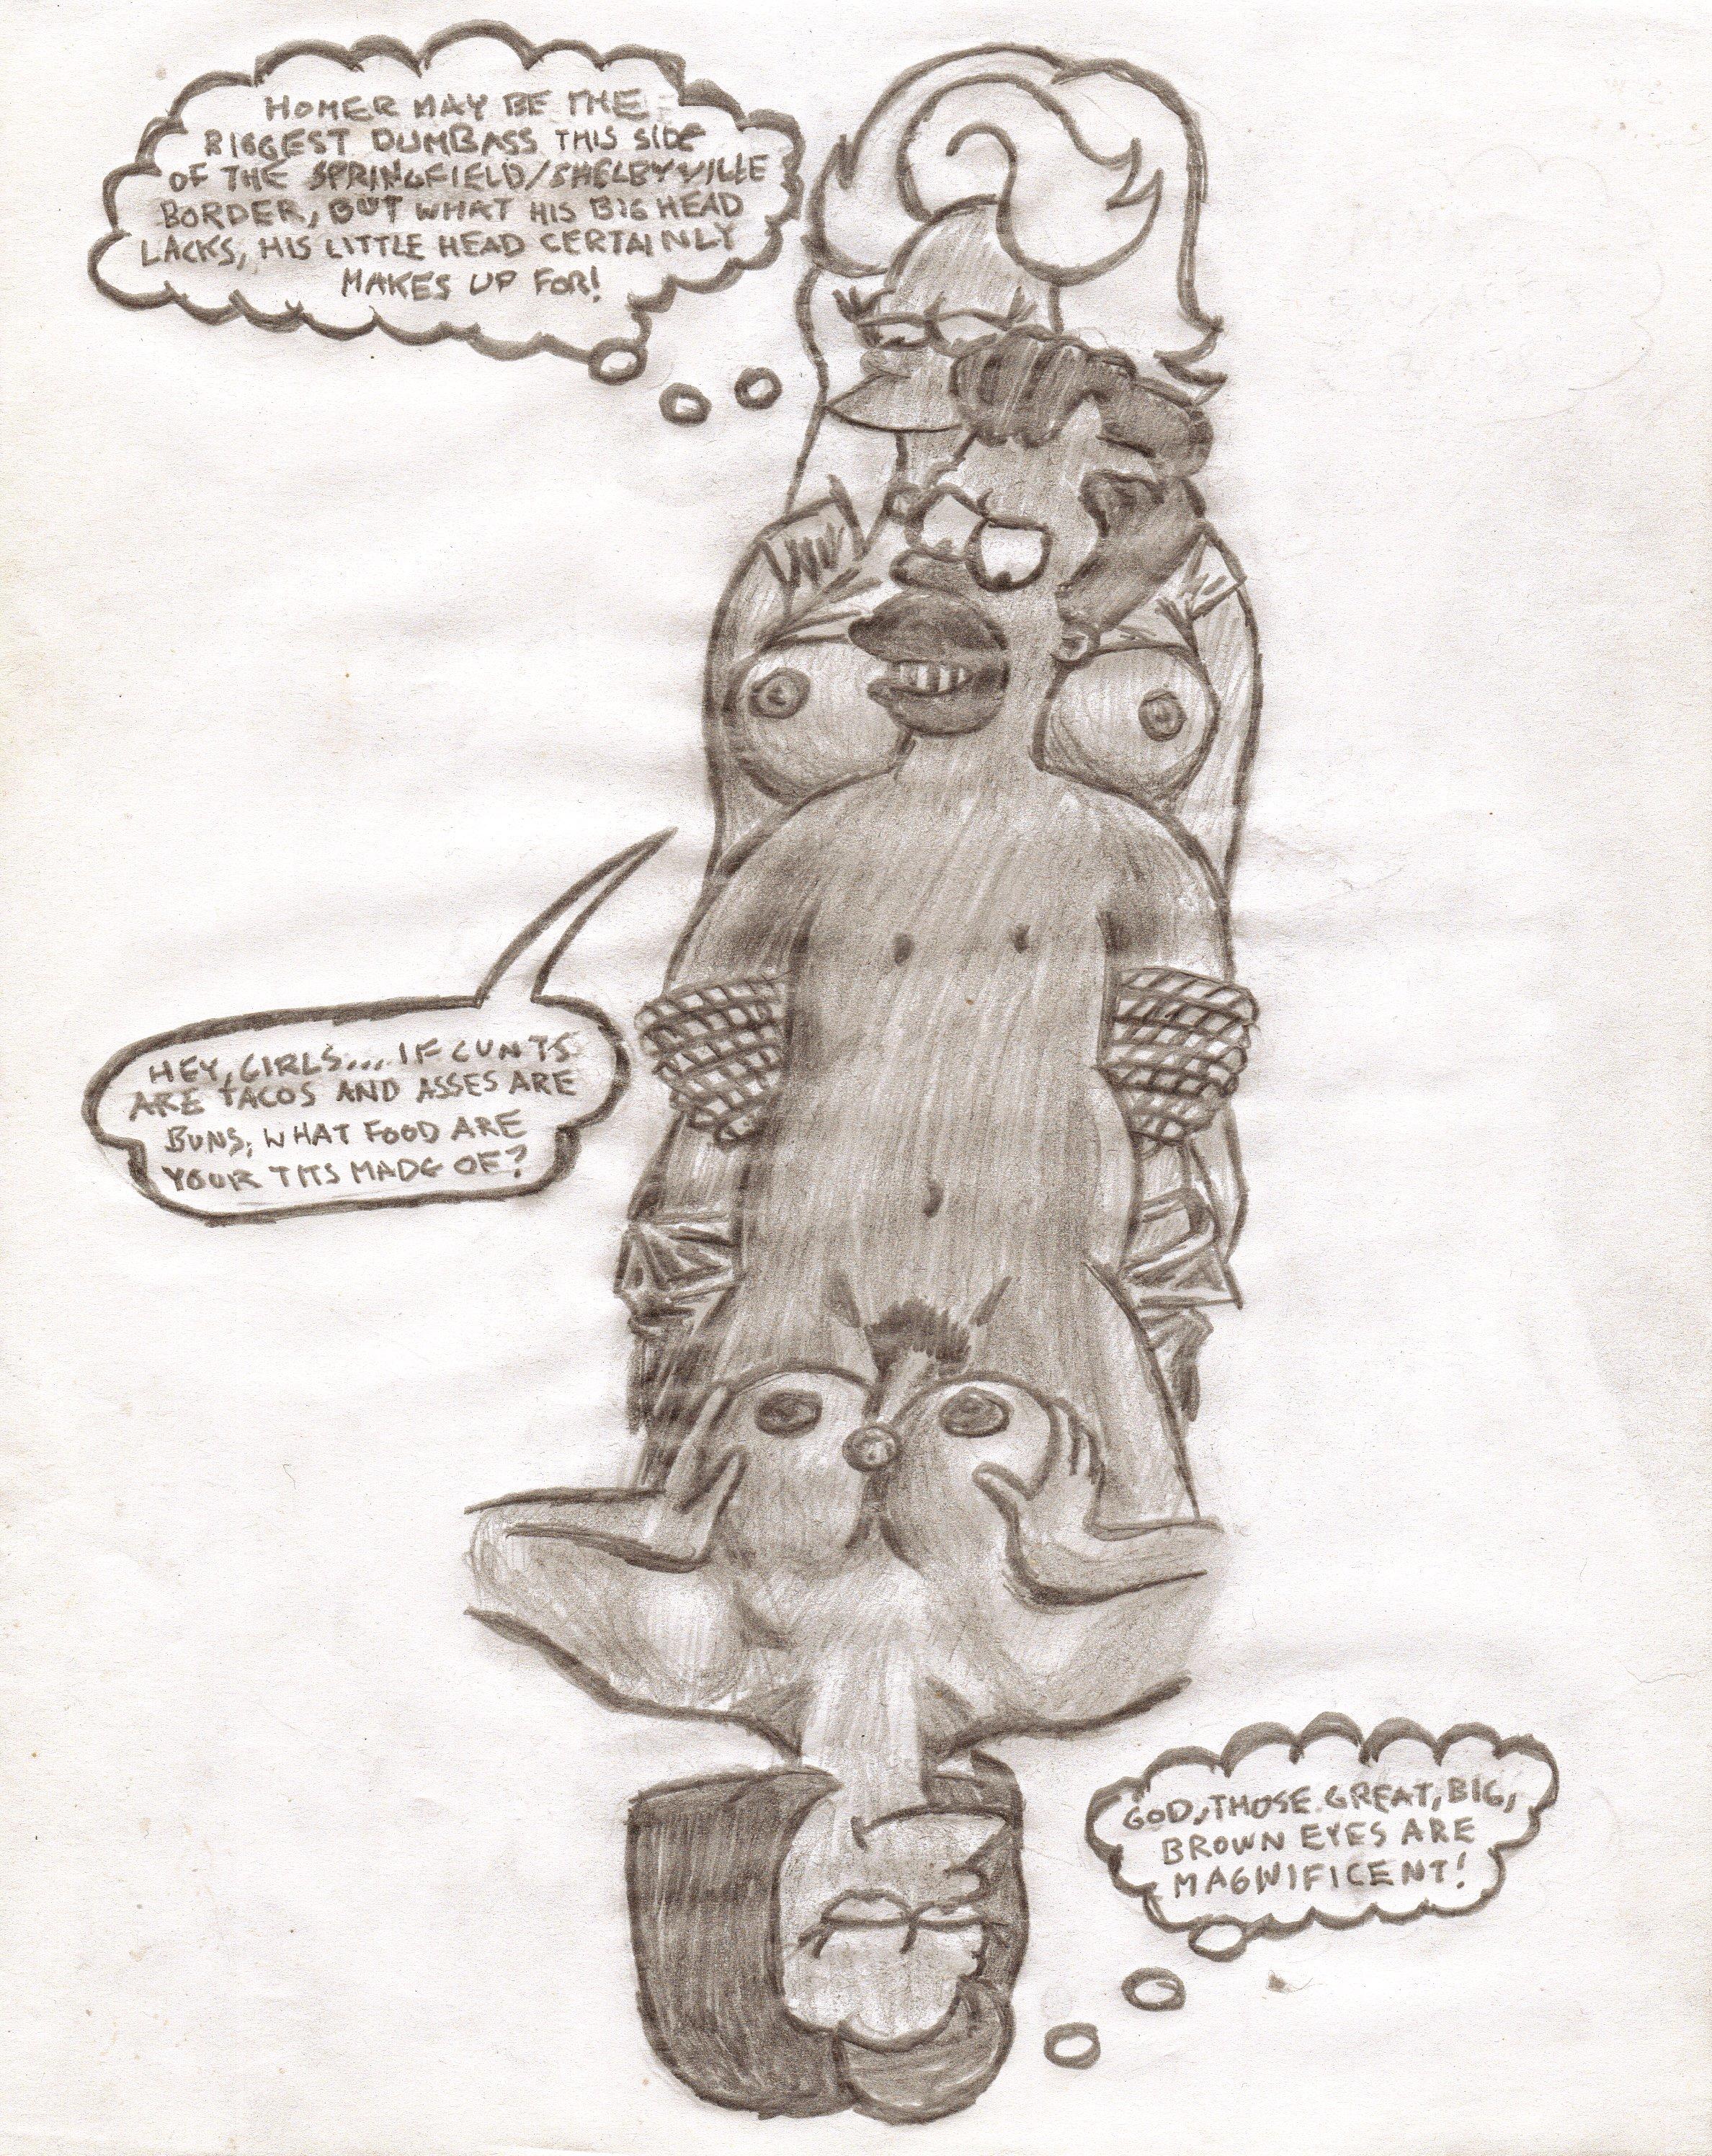 HOMER MAY BE THE
BIGGEST DUMBASS THIS SIDE
OF THE SPRINGFIELD/SHELBYVILLE
BORDER, BUT WHAT HIS BIG HEAD
LACKS, HIS LITTLE HEAD CERTAINLY
MAKES UP FOR!
HEY, GIRLS.... IF CUNTS
ARE TACOS AND ASSES ARE
BUNS, WHAT FOOD ARE
YOUR TITS MADE OF?
GOD, THOSE GREAT, BIG,
BROWN EYES ARE
MAGNIFICENT!